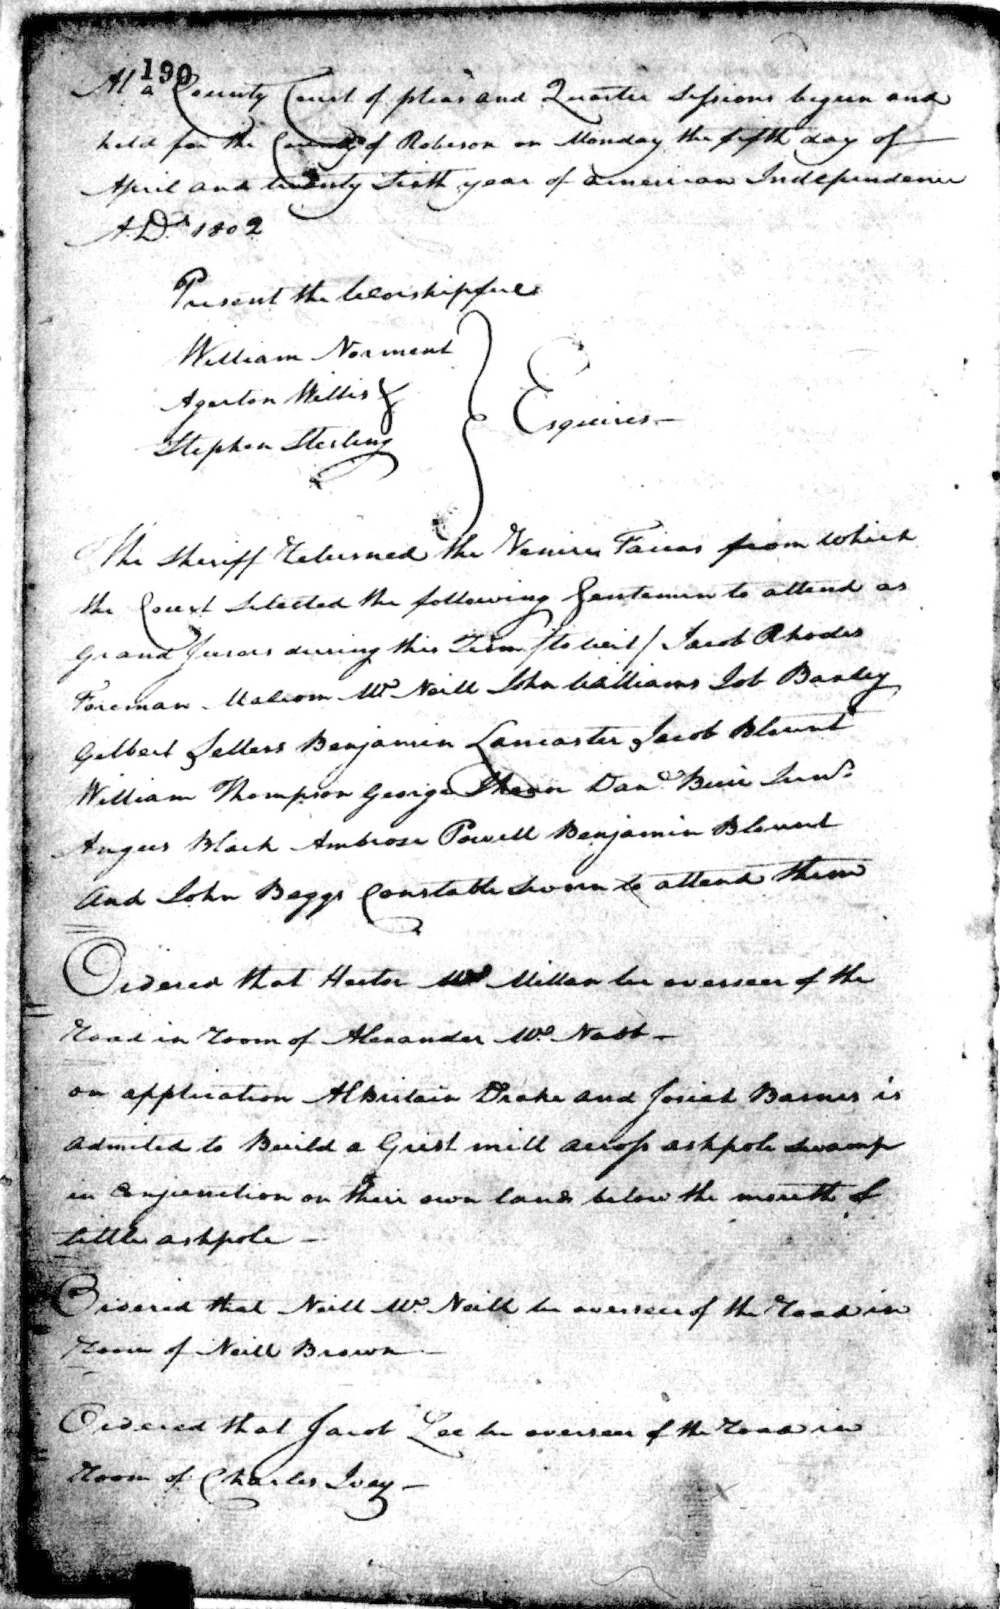 190
At a County Court of pleas and Quarter Sessions begun and
held for the County of Robeson on Monday the fifth day of
April and twenty Sixth year of american Independence
A.D. 1802
Present the Worshipfull
William Norment
Agerton Willis &
Stephen Sterling
Esquires
The Sheriff Returned the Venire Facias from which
the Court Selected the following Gentemen to attend as
Grand Jurors during this Term (to wit) Jacob Rhodes
Foreman Malcom Mc Neill John Williams Job Barley
Gilbert Sellers Benjamin Lancaster Jacob Blount
William Thompson George Danl Buie Junr
Angus Black Ambrose Powell Benjamin Blount
And John Beggs Constable Sworn to attend them
Ordered that Hector Mc Millan be overseer of the
Road in Room of Alexander Mc Nabb -
on application AlBritain Drake and Josiah Barnes is
admited to Build a Grist mill across ashpole swamp
in Conjunction on their own lands below the mouth of
little ashpole -
Ordered that Neill Mc Neill be overseer of the Road in
Room of Neill Brown -
Ordered that Jacob Lee be overseer of the Road in
Room of Charles Ivey -